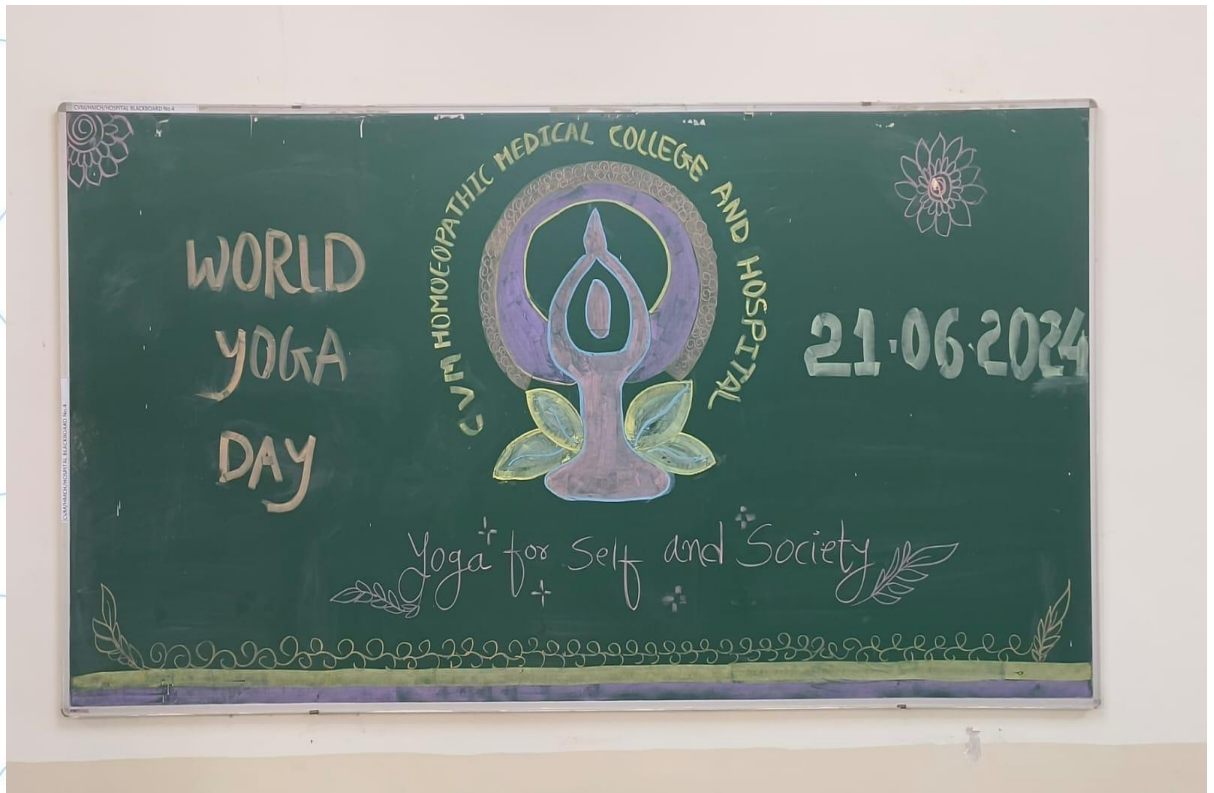 CVM/HMCH/HOSPITAL BLACKBOARD No.4
CVM HOMOEOPATHIC MEDICAL COLLEGE AND HOSPITAL
WORLD
YOGA
DAY
21.06.2024
Yoga for Self and Society
CVM/HMCH/HOSPITAL BLACKBOARD No.4